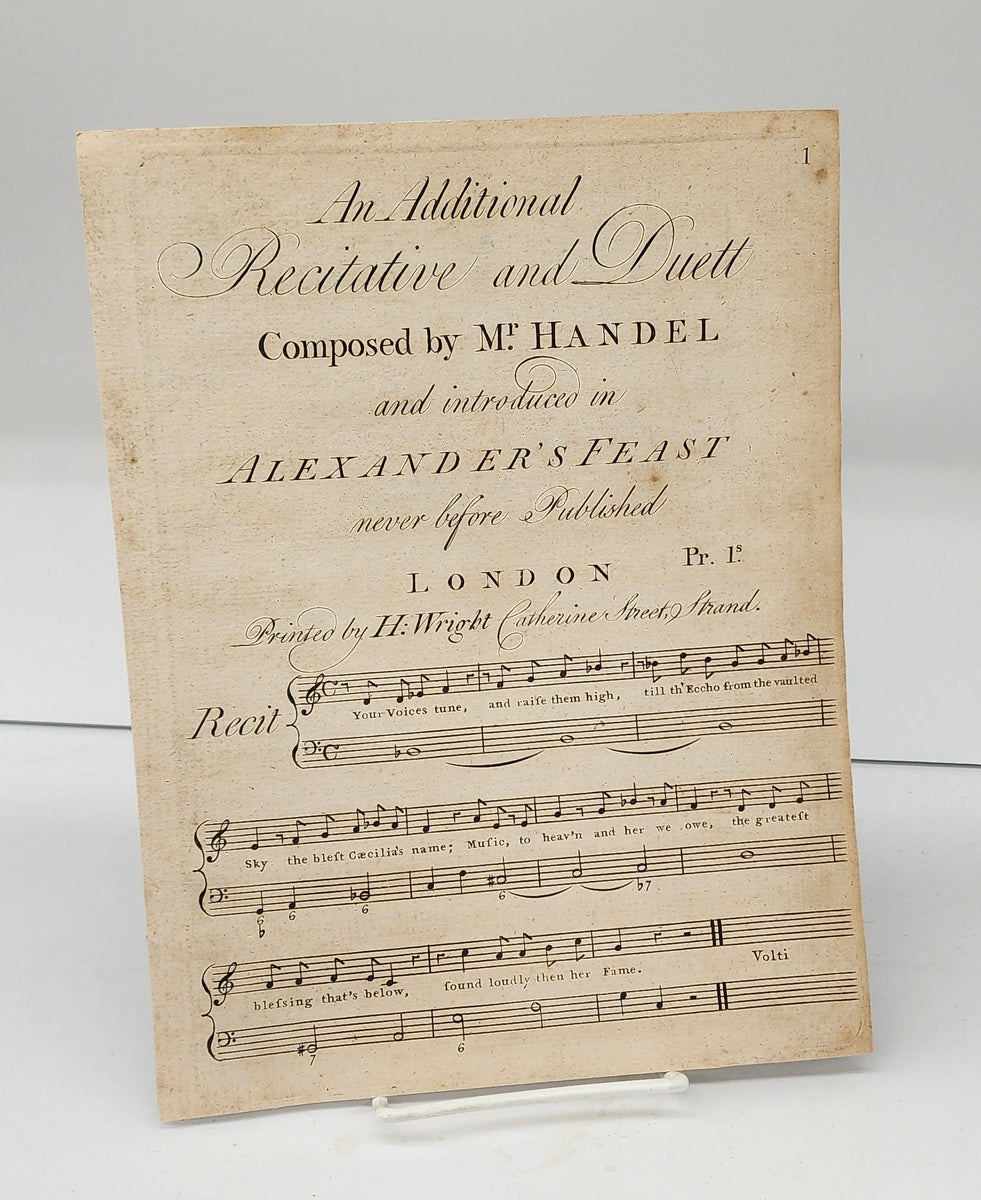 1
An Additional
Recitative and Duett
Composed by Mr. HANDEL
and introduced in
ALEXANDER'S FEAST
never before Published
Pr. 1s.
LONDON
Printed by H: Wright Catherine Street, Strand.
Recit
Your Voices tune, and raiſe them high, till th' Eccho from the vaulted
Sky the bleſt Cæcilia's name; Muſic, to heav'n and her we owe, the greateſt
6 6 6 6 ♭7
♭
bleſsing that's below, ſound loudly then her Fame.
Volti
7 6